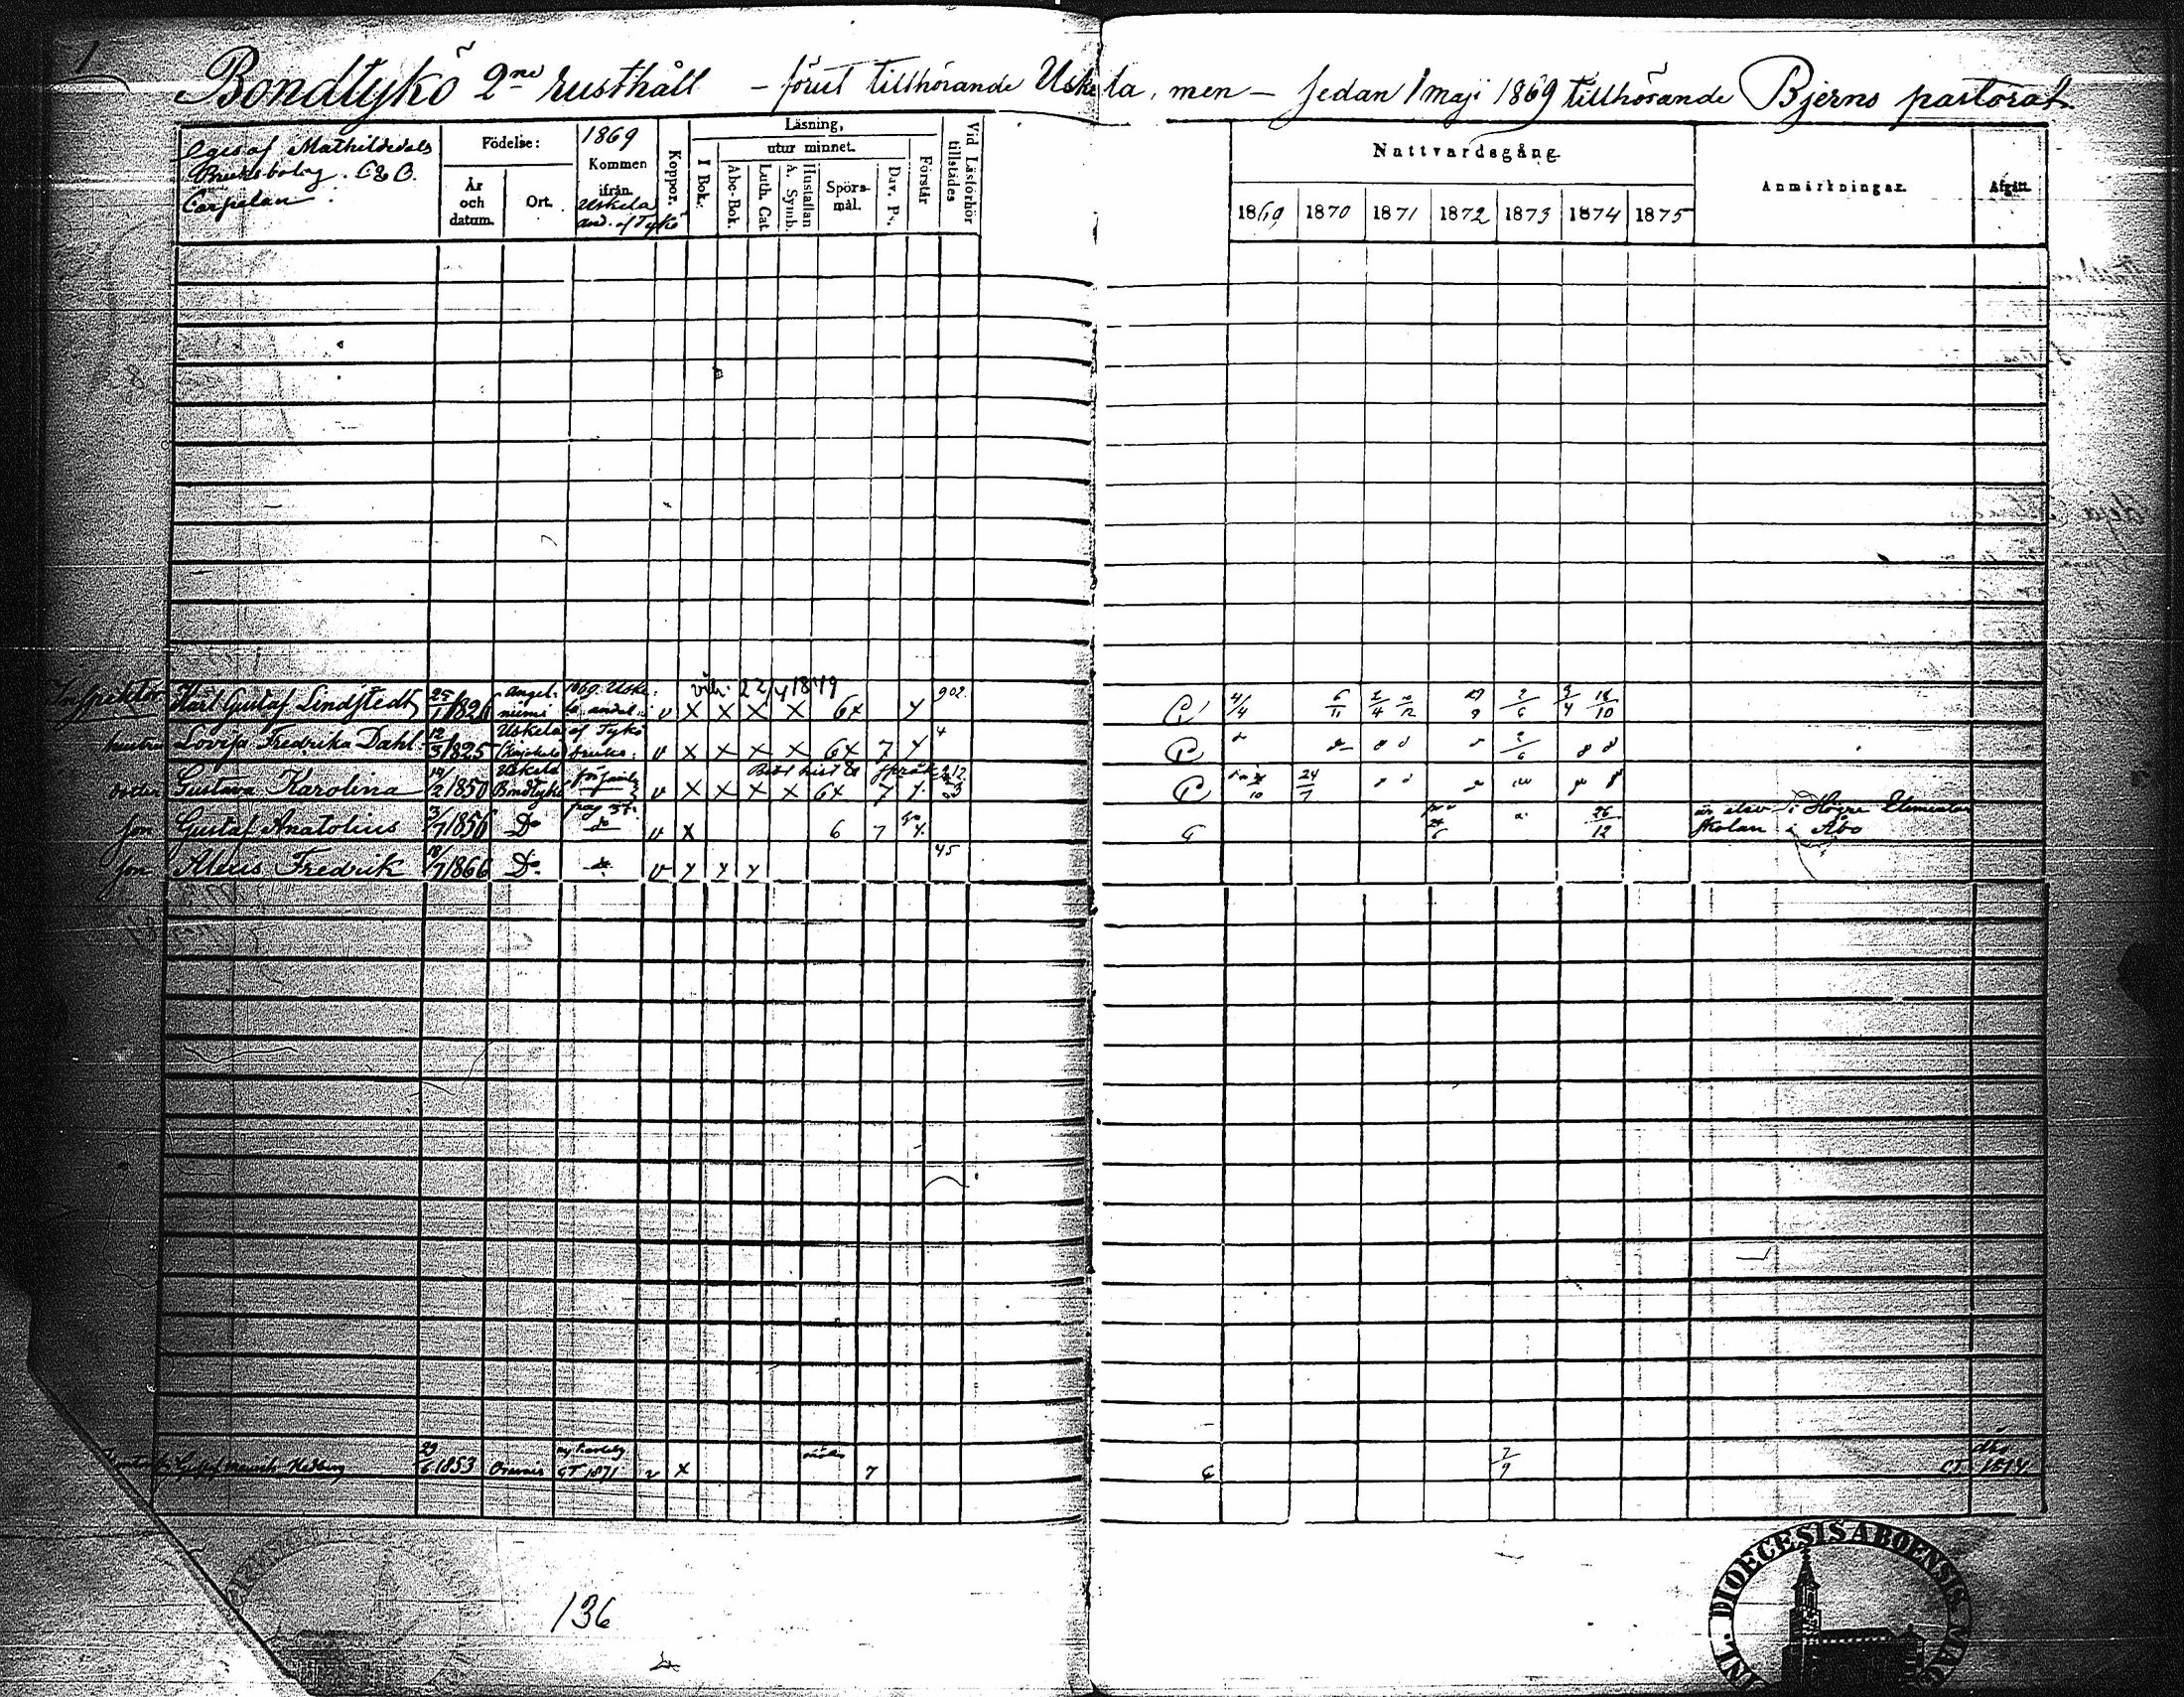 1
Bondtykö 2ne rusthåll – förut tillhörande Uskela, men – sedan 1 maji 1869 tillhörande Bjerno pastorat.
Eges af Mathildedals
Bruksbolag. C & O.
Carpelan.
Födelse:
År och datum.
Ort.
1869
Kommen ifrån.
Uskela
and. af Tykö
Koppor.
Läsning,
I Bok.
utur minnet.
Abc-Bok.
Luth. Cat
Hustaflan A. Symb.
Spörs-mål.
Dav. Ps.
Förstår
Vid Läsförhör tillstädes
Nattvardsgång
1869 1870 1871 1872 1873 1874 1875
Anmärkningar.
Afgått.
Inspektor Karl Gustaf Lindstedt 25/1 1826 Angel-niemi 1869. Uske-la andel v X X X X 6X 7 902. 4/4 6/11 2/4 2/6 18/10
hustru Lovisa Fredrika Dahl 12/3 1825 Uskela af Tykö bruks: v X X X X 6X 7 y 4 2/6
dotter Gustava Karolina 14/2 1850 Uskela Bondtykö v X X X X 6X 7 24/7
son Gustaf Anatolius 3/7 1856 Do do v X 6 7 26/12 är elev i Högre Elementar
skolan i Åbo
son Alexis Fredrik 18/7 1866 Do v X X X 45
29/6 1853 Oravais GT. 1871 v X 7 7/9 1874
136
DIOECESIS ABOENSIS